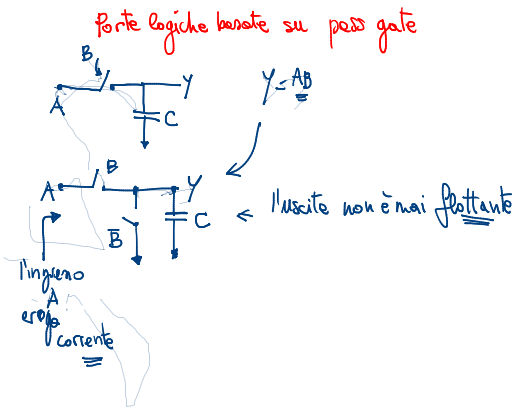 Porte logiche basate su pass gate
B
A
Y
C
Y = AB
A
B
Y
B̅
C
← l'uscita non è mai flottante
l'ingresso
A
eroga
corrente